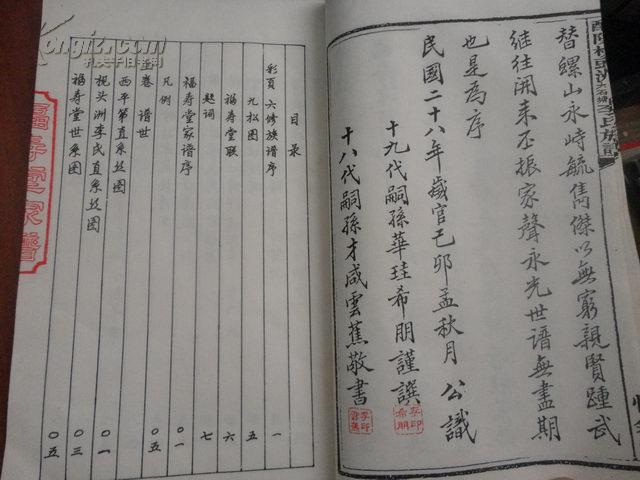 替螺山永峙毓雋傑以無窮親賢踵武
继往開来丕振家聲永光世谱無盡期
也是為序
民國二十八年歲官己卯孟秋月 公識
十九代嗣孫華珪希朋謹譔
十八代嗣孫才咸雲蕉敬書
李印希朋
目录
彩頁 六修族谱序 一
九松图 五
福寿堂联 六
题词 七
福寿堂家谱序 〇一
凡例 〇五
上卷 谱世
西平第直系丝图 〇一
枧头洲李氏直系丝图 〇三
福寿堂世系图 〇五
福寿堂家譜
Kongfz.com
孔夫子旧书网